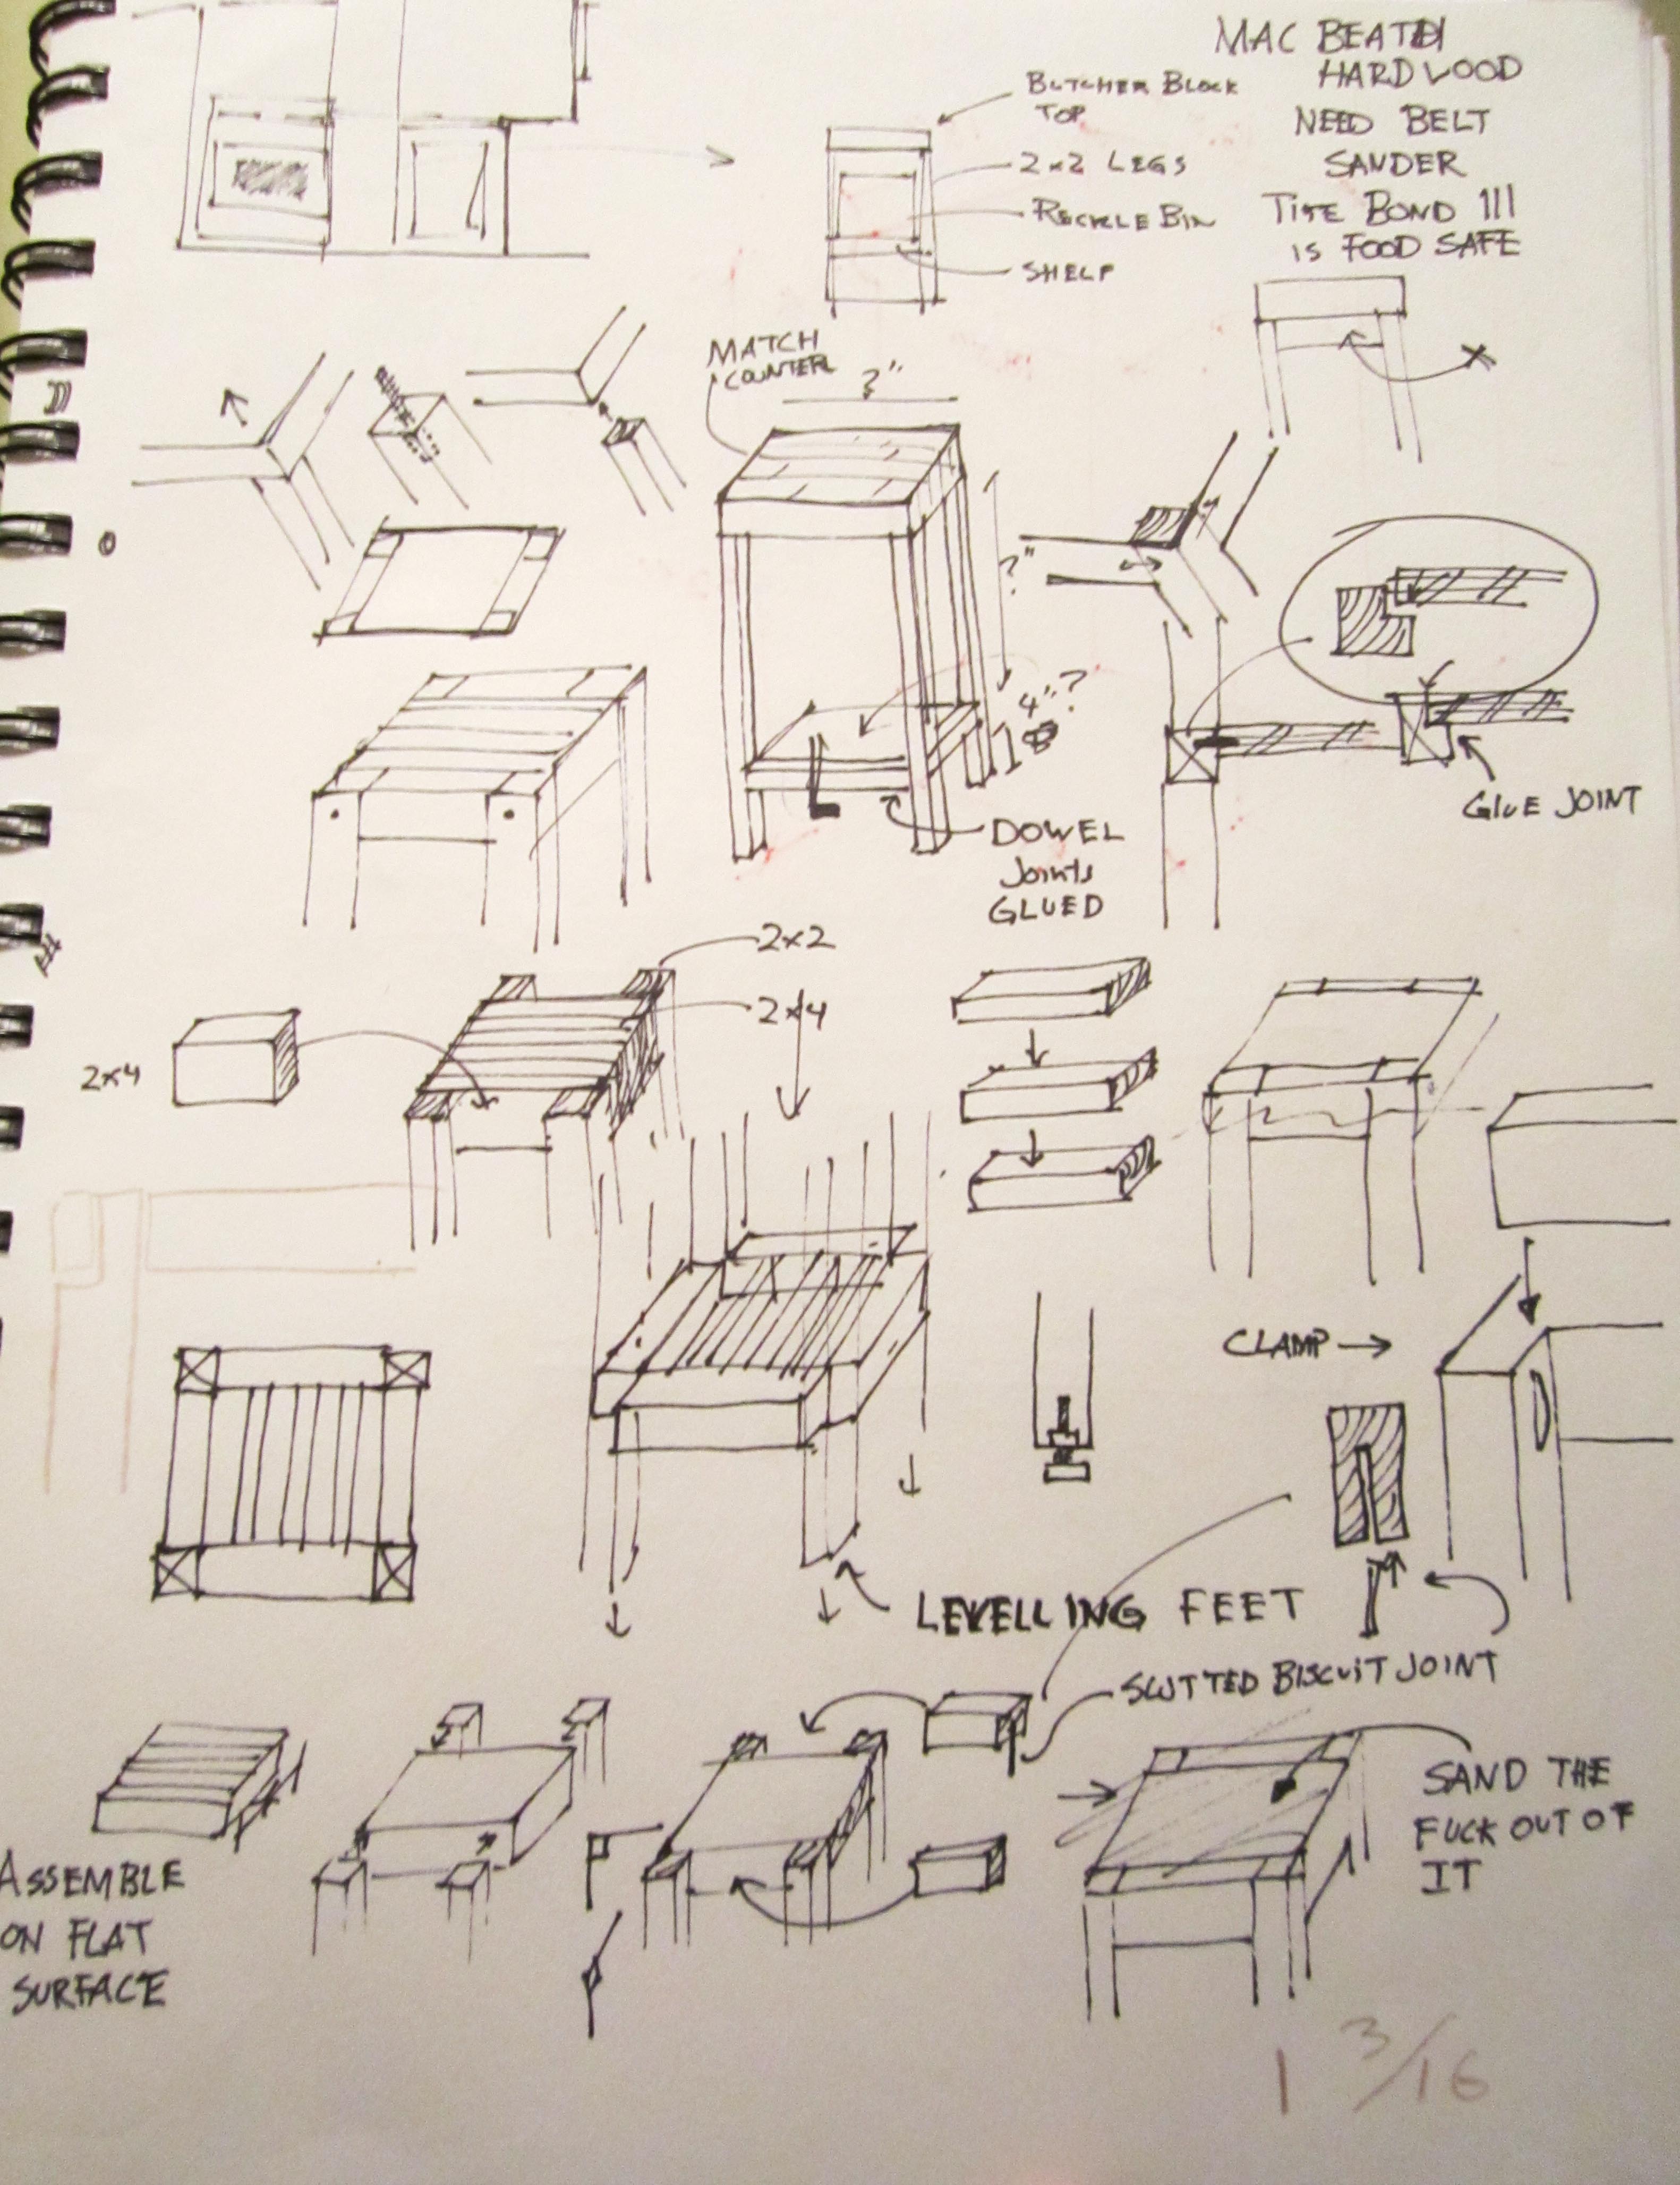 MAC BEATH
HARDWOOD
NEED BELT
SANDER
TITE BOND III
IS FOOD SAFE
BUTCHER BLOCK
TOP
2x2 LEGS
RECYCLE BIN
SHELF
MATCH
COUNTER
?"
?"
4"?
GLUE JOINT
DOWEL
Joints
GLUED
2x2
2x4
2x4
CLAMP
LEVELLING FEET
SLOTTED BISCUIT JOINT
SAND THE
FUCK OUT OF
IT
ASSEMBLE
ON FLAT
SURFACE
1 3/16